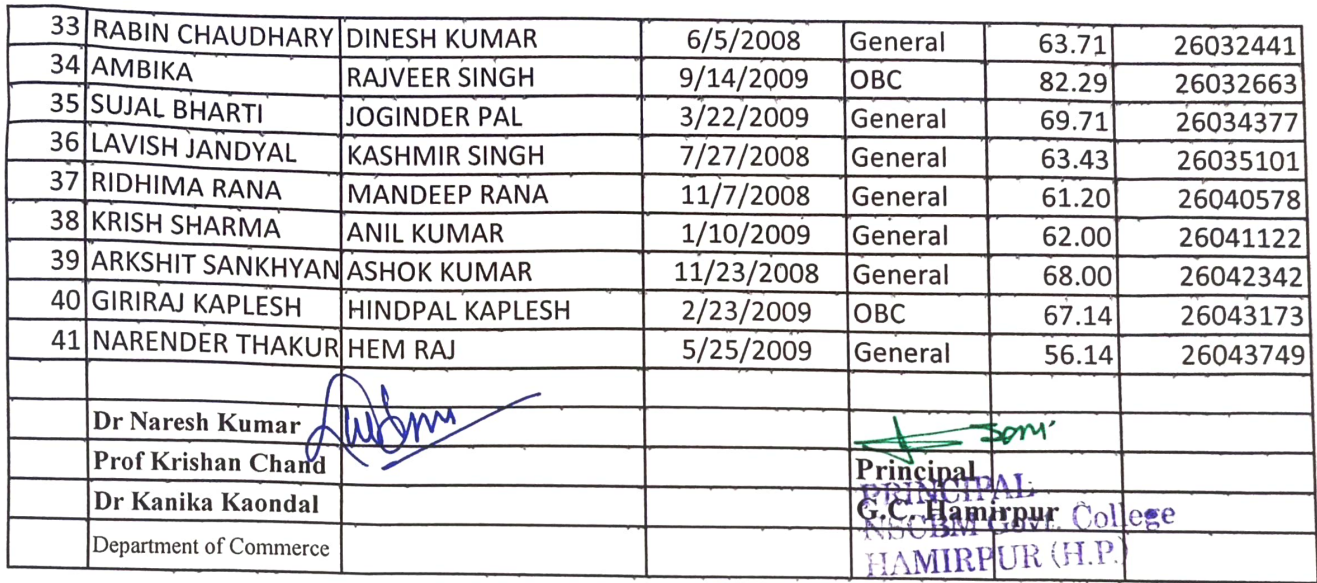 33 RABIN CHAUDHARY DINESH KUMAR 6/5/2008 General 63.71 26032441
34 AMBIKA RAJVEER SINGH 9/14/2009 OBC 82.29 26032663
35 SUJAL BHARTI JOGINDER PAL 3/22/2009 General 69.71 26034377
36 LAVISH JANDYAL KASHMIR SINGH 7/27/2008 General 63.43 26035101
37 RIDHIMA RANA MANDEEP RANA 11/7/2008 General 61.20 26040578
38 KRISH SHARMA ANIL KUMAR 1/10/2009 General 62.00 26041122
39 ARKSHIT SANKHYAN ASHOK KUMAR 11/23/2008 General 68.00 26042342
40 GIRIRAJ KAPLESH HINDPAL KAPLESH 2/23/2009 OBC 67.14 26043173
41 NARENDER THAKUR HEM RAJ 5/25/2009 General 56.14 26043749
Dr Naresh Kumar
Prof Krishan Chand Principal
PRINCIPAL
Dr Kanika Kaondal G.C. Hamirpur
NSCBM Govt. College
Department of Commerce HAMIRPUR (H.P.)